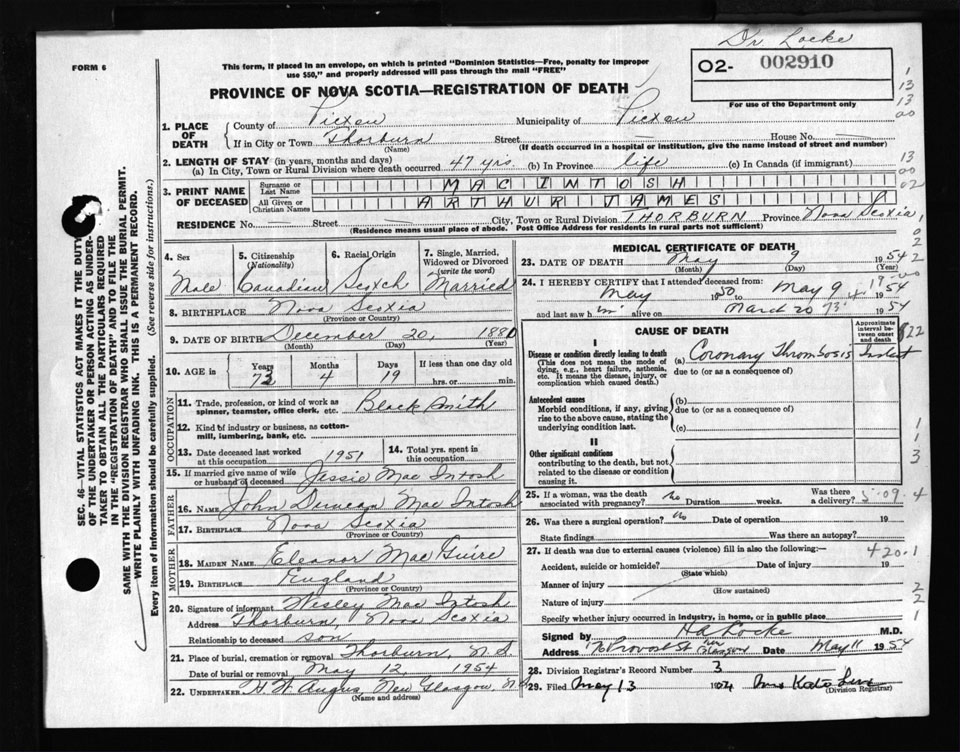 Dr Locke
FORM 6
This form, if placed in an envelope, on which is printed "Dominion Statistics—Free, penalty for improper
use $50," and properly addressed will pass through the mail "FREE"
02- 002910
For use of the Department only
PROVINCE OF NOVA SCOTIA—REGISTRATION OF DEATH
1. PLACE OF DEATH
County of Pictou Municipality of Pictou
If in City or Town Thorburn Street House No.
(Name) (If death occurred in a hospital or institution, give the name instead of street and number)
2. LENGTH OF STAY (in years, months and days)
(a) In City, Town or Rural Division where death occurred 47 yrs. (b) In Province life (c) In Canada (if immigrant)
3. PRINT NAME OF DECEASED
Surname or Last Name MAC INTOSH
All Given or Christian Names ARTHUR JAMES
RESIDENCE No. Street City, Town or Rural Division THORBURN Province Nova Scotia
(Residence means usual place of abode. Post Office Address for residents in rural parts not sufficient)
4. Sex
Male
5. Citizenship
(Nationality)
Canadian
6. Racial Origin
Scotch
7. Single, Married,
Widowed or Divorced
(write the word)
Married
8. BIRTHPLACE Nova Scotia
(Province or Country)
9. DATE OF BIRTH December 20, 1880
(Month) (Day) (Year)
10. AGE in
Years Months Days If less than one day old
73 4 19 hrs. or min.
OCCUPATION
11. Trade, profession, or kind of work as
spinner, teamster, office clerk, etc. Black Smith
12. Kind of industry or business, as cotton-
mill, lumbering, bank, etc.
13. Date deceased last worked
at this occupation 1951
14. Total yrs. spent in
this occupation
15. If married give name of wife
or husband of deceased Jessie Mac Intosh
FATHER
16. NAME John Duncan Mac Intosh
17. BIRTHPLACE Nova Scotia
(Province or Country)
MOTHER
18. MAIDEN NAME Eleanor Mac Guire
19. BIRTHPLACE England
(Province or Country)
20. Signature of informant Wesley Mac Intosh
Address Thorburn, Nova Scotia
Relationship to deceased son
21. Place of burial, cremation or removal Thorburn, N.S.
Date of burial or removal May 12, 1954
22. UNDERTAKER H W Angus, New Glasgow, N.S.
(Name and address)
MEDICAL CERTIFICATE OF DEATH
23. DATE OF DEATH May 9 1954
(Month) (Day) (Year)
24. I HEREBY CERTIFY that I attended deceased from:
May 1950 to May 9 1954
and last saw him alive on March 20 1954
CAUSE OF DEATH
Approximate
interval between onset
and death
I
Disease or condition directly leading to death
(This does not mean the mode of
dying, e.g., heart failure, asthenia,
etc. It means the disease, injury, or
complication which caused death.)
(a) Coronary Thrombosis
due to (or as a consequence of)
Antecedent causes
Morbid conditions, if any, giving
rise to the above cause, stating the
underlying condition last.
(b)
due to (or as a consequence of)
(c)
II
Other significant conditions
contributing to the death, but not
related to the disease or condition
causing it.
25. If a woman, was the death
associated with pregnancy? No Duration weeks. Was there
a delivery?
26. Was there a surgical operation? No Date of operation 19
State findings Was there an autopsy?
27. If death was due to external causes (violence) fill in also the following:— 420.1
Accident, suicide or homicide? Date of injury 19
(State which)
Manner of injury
(How sustained)
Nature of injury
Specify whether injury occurred in Industry, in home, or in public place
Signed by HA Locke M.D.
Address Provost St New Glasgow Date May 11 1954
28. Division Registrar's Record Number 3
29. Filed May 13
(Division Registrar)
SEC. 46—VITAL STATISTICS ACT MAKES IT THE DUTY
OF THE UNDERTAKER OR PERSON ACTING AS UNDER-
TAKER TO OBTAIN ALL THE PARTICULARS REQUIRED
IN THE "REGISTRATION OF DEATH" AND TO FILE THE
SAME WITH THE DIVISION REGISTRAR WHO SHALL ISSUE THE BURIAL PERMIT.
WRITE PLAINLY WITH UNFADING INK. THIS IS A PERMANENT RECORD.
Every item of information should be carefully supplied. (See reverse side for instructions.)